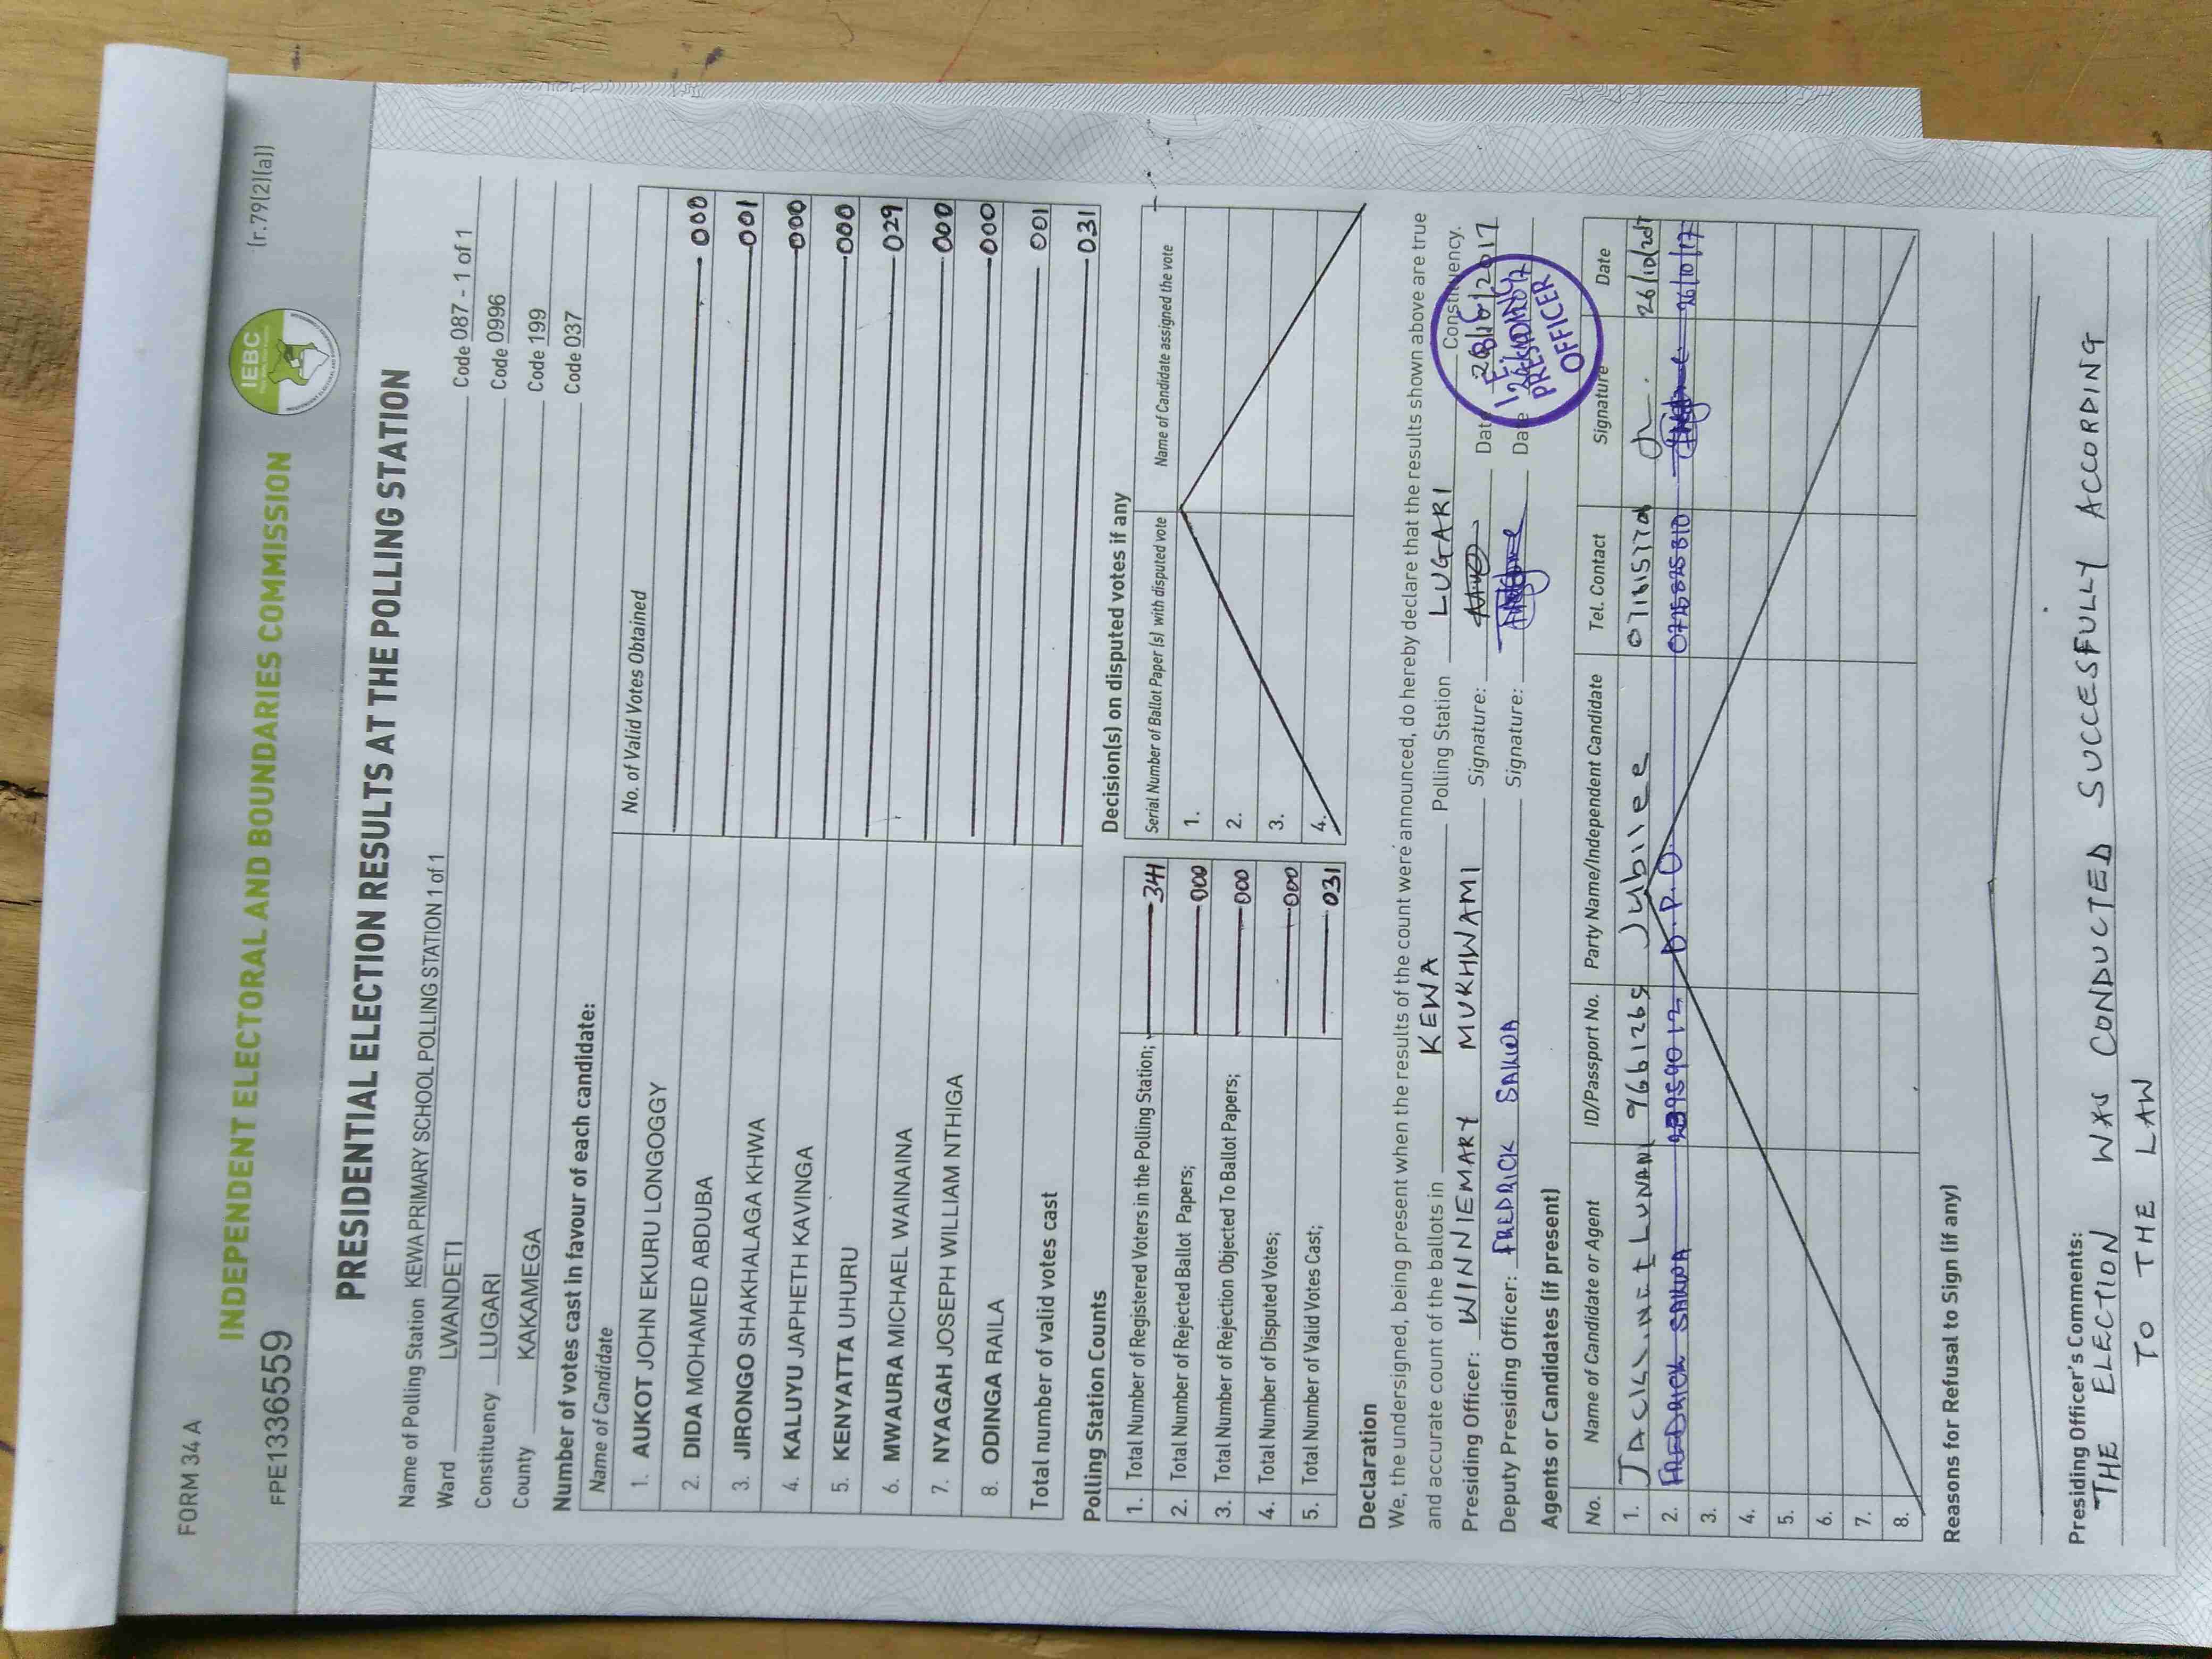 FORM 34 A
INDEPENDENT ELECTORAL AND BOUNDARIES COMMISSION
IEBC
(r.79(2)(a))
FPE1336559
PRESIDENTIAL ELECTION RESULTS AT THE POLLING STATION
Name of Polling Station KEWA PRIMARY SCHOOL POLLING STATION 1 of 1 Code 087 - 1 of 1
Ward LWANDETI Code 0996
Constituency LUGARI Code 199
County KAKAMEGA Code 037
Number of votes cast in favour of each candidate:
Name of Candidate No. of Valid Votes Obtained
1. AUKOT JOHN EKURU LONGOGGY 000
2. DIDA MOHAMED ABDUBA 001
3. JIRONGO SHAKHALAGA KHWA 000
4. KALUYU JAPHETH KAVINGA 000
5. KENYATTA UHURU 029
6. MWAURA MICHAEL WAINAINA 000
7. NYAGAH JOSEPH WILLIAM NTHIGA 000
8. ODINGA RAILA 001
Total number of valid votes cast 031
Polling Station Counts
1. Total Number of Registered Voters in the Polling Station; 341
2. Total Number of Rejected Ballot Papers; 000
3. Total Number of Rejection Objected To Ballot Papers; 000
4. Total Number of Disputed Votes; 000
5. Total Number of Valid Votes Cast; 031
Decision(s) on disputed votes if any
Serial Number of Ballot Paper (s) with disputed vote Name of Candidate assigned the vote
1.
2.
3.
4.
Declaration
We, the undersigned, being present when the results of the count were announced, do hereby declare that the results shown above are true
and accurate count of the ballots in KEWA Polling Station LUGARI Constituency.
Presiding Officer: WINNIEMARY MUKHWAMI Signature: Date
Deputy Presiding Officer: FREDRICK SAKWA Signature: Date
PRESIDING
OFFICER
Agents or Candidates (if present)
No. Name of Candidate or Agent ID/Passport No. Party Name/Independent Candidate Tel. Contact Signature Date
1. Jubilee 26/10/2017
2. FREDRICK SAKWA D.P.O. 26/10/17
3.
4.
5.
6.
7.
8.
Reasons for Refusal to Sign (if any)
Presiding Officer's Comments:
THE ELECTION WAS CONDUCTED SUCCESSFULLY ACCORDING
TO THE LAW